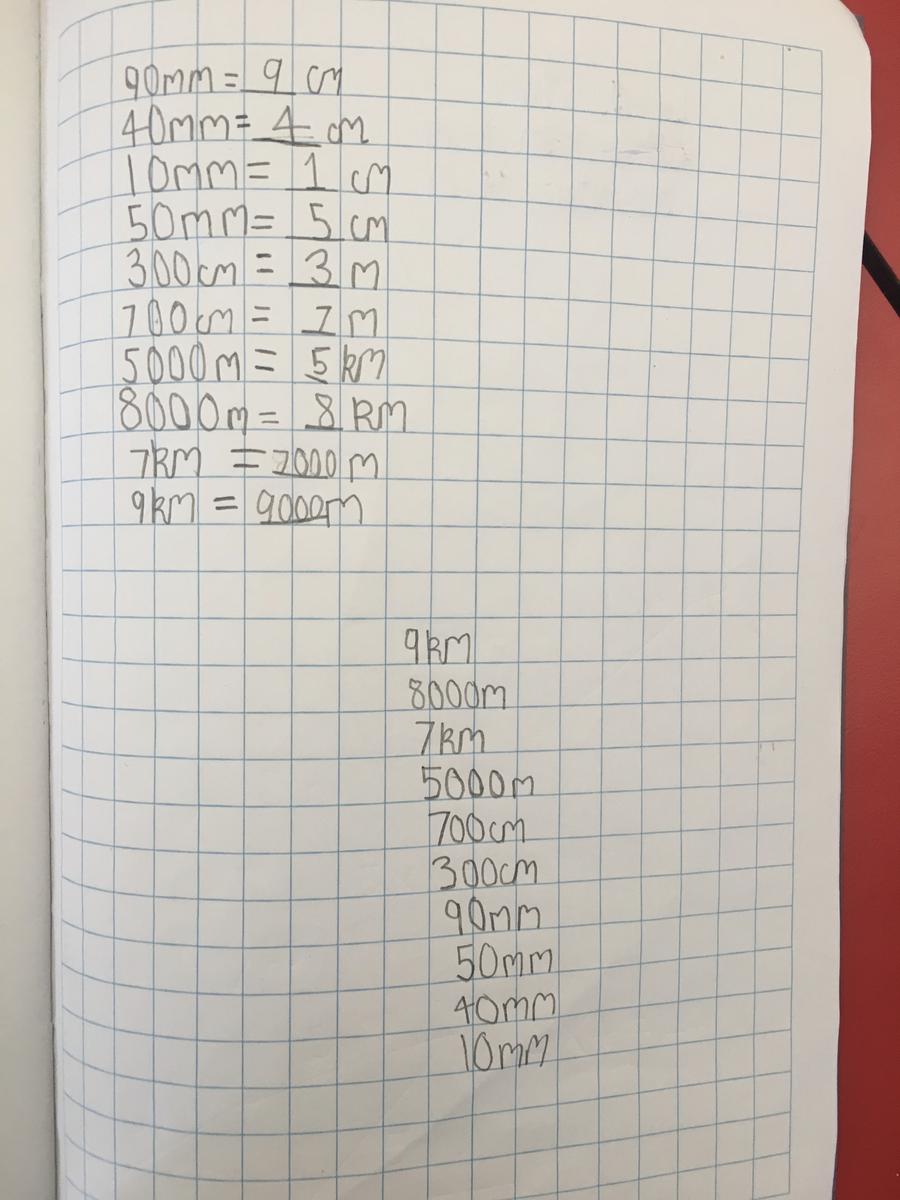 90mm = 9 cm
40mm = 4 cm
10mm = 1 cm
50mm = 5 cm
300cm = 3 m
700cm = 7 m
5000m = 5 km
8000m = 8 km
7km = 7000 m
9km = 9000m
9km
8000m
7km
5000m
700cm
300cm
90mm
50mm
40mm
10mm